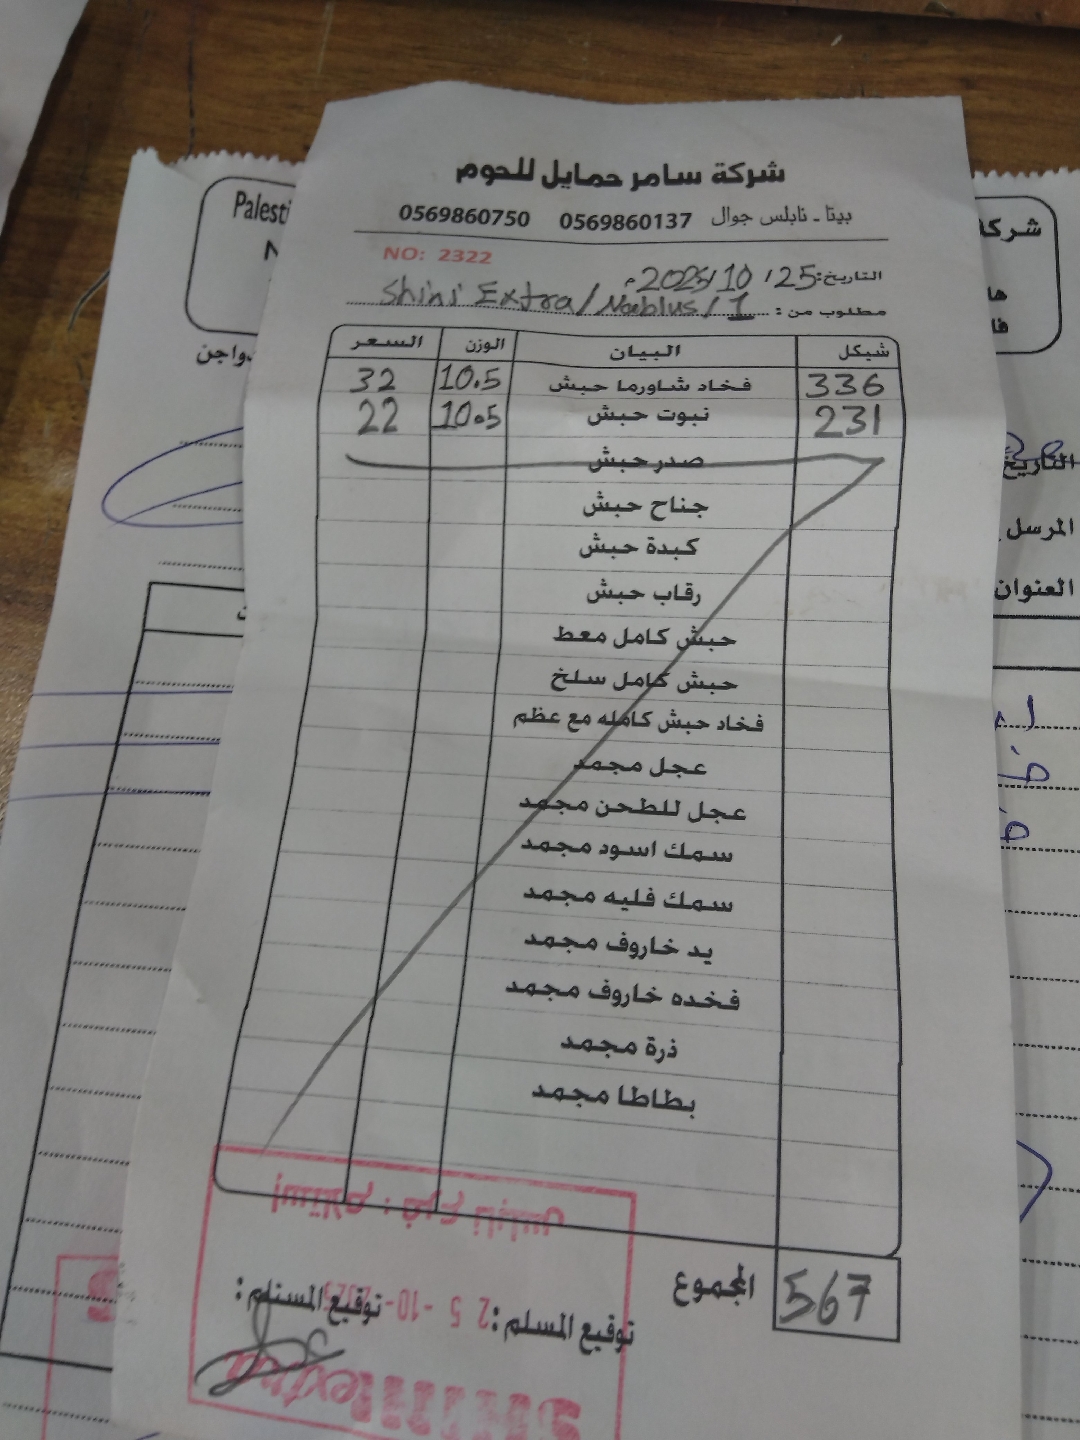 شركة سامر حمايل للحوم
بيتا - نابلس جوال 0569860137 0569860750
NO: 2322
التاريخ: 25 / 10 / 2025م
مطلوب من : Shini Extra / Nablus / 1
شيكل البيان الوزن السعر
336 فخاد شاورما حبش 10.5 32
231 نبوت حبش 10.5 22
صدر حبش
جناح حبش
كبدة حبش
رقاب حبش
حبش كامل معط
حبش كامل سلخ
فخاد حبش كامله مع عظم
عجل مجمد
عجل للطحن مجمد
سمك اسود مجمد
سمك فليه مجمد
يد خاروف مجمد
فخده خاروف مجمد
ذرة مجمد
بطاطا مجمد
567 المجموع
توقيع المسلم : توقيع المستلم :
إستلام : فرع نابلس
25 -10- 2025
extra
Palesti
N
شركة
ها
فا
دواجن
التاريخ
المرسل
العنوان